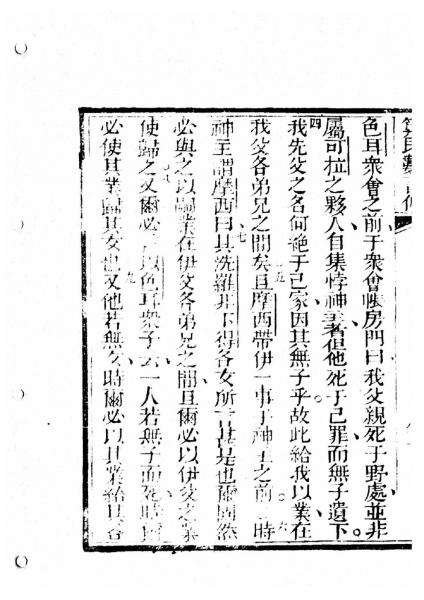 色耳衆會之前于衆會帳房門曰我父親死于野處並非
屬可拉之夥人自集悖神主者但他死于己罪而無子遺下
四我先父之名何絶于己家因其無子乎故此給我以業在
我父各弟兄之間矣五且摩西帶伊一事于神主之前六時
神主謂摩西曰七其洗羅非下得各女所言甚是也爾固然
必與之以嗣業在伊父各弟兄之間且爾必以伊父之業
使歸之又爾必言以色耳衆子云一人若無子而死時爾
必使其業歸其女也九又他若無女時爾必以其業給其各